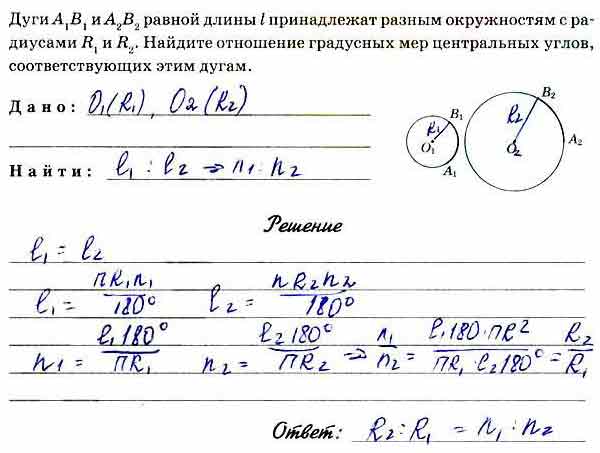 Дуги A₁B₁ и A₂B₂ равной длины l принадлежат разным окружностям с ра-
диусами R₁ и R₂. Найдите отношение градусных мер центральных углов,
соответствующих этим дугам.
Дано: O₁(R₁), O2(R₂)
Найти: ℓ₁ : ℓ₂ ⇒ n₁ : n₂
R₁ B₁ O₁ A₁
R₂ B₂ O₂ A₂
Решение
ℓ₁ = ℓ₂
ℓ₁ = ПR₁n₁/180° ℓ₂ = ПR₂n₂/180°
n₁ = ℓ₁180°/ПR₁ n₂ = ℓ₂180°/ПR₂ ⇒ n₁/n₂ = ℓ₁180·ПR2/ПR₁·ℓ₂180° = R₂/R₁
Ответ: R₂:R₁ = n₁:n₂